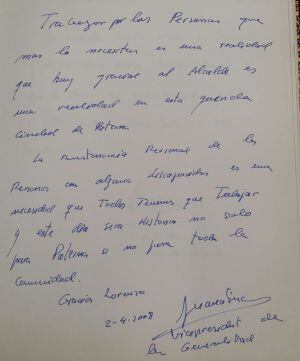 Trabajar por las Personas que
mas lo necesitan es una realidad
que hoy gracias al Alcalde es
una realidad en esta querida
Ciudad de Paterna
La Asistencia Personal de las
Personas con alguna discapacidad es una
necesidad que Todos Tenemos que Trabajar
y este dia sera Historia no solo
para Paterna si no para toda la
Comunidad.
Gracias Lorenzo
2-4-2008
Vicepresident de
la Generalitat